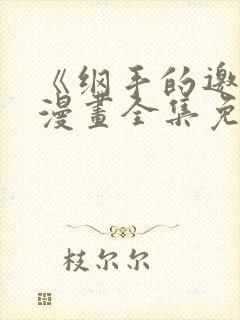 《纲手的邀
漫畫全集免
枝尔尔